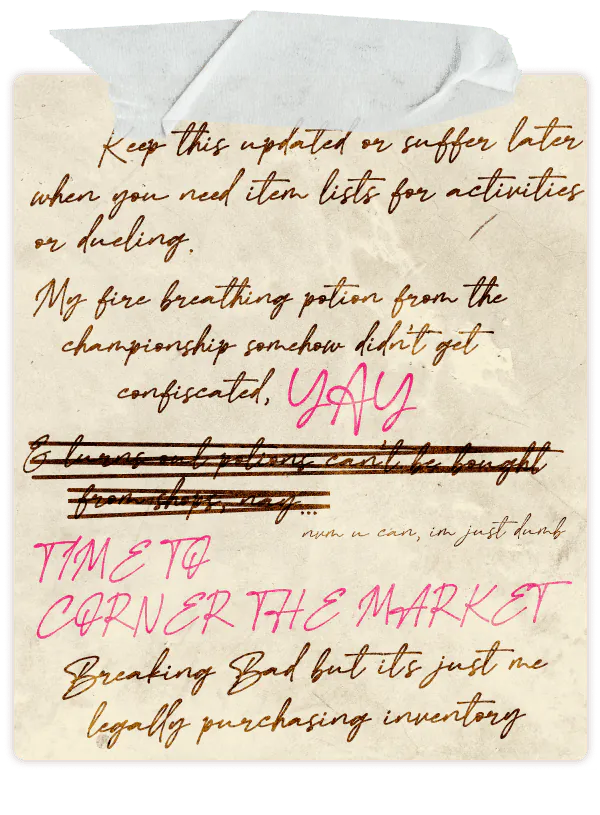 Keep this updated or suffer later
when you need item lists for activities
or dueling.
My fire breathing potion from the
championship somehow didn't get
confiscated, YAY
& turns out potions can't be bought
from shops, nay...
nvm u can, im just dumb
TIME TO
CORNER THE MARKET
Breaking Bad but it's just me
legally purchasing inventory